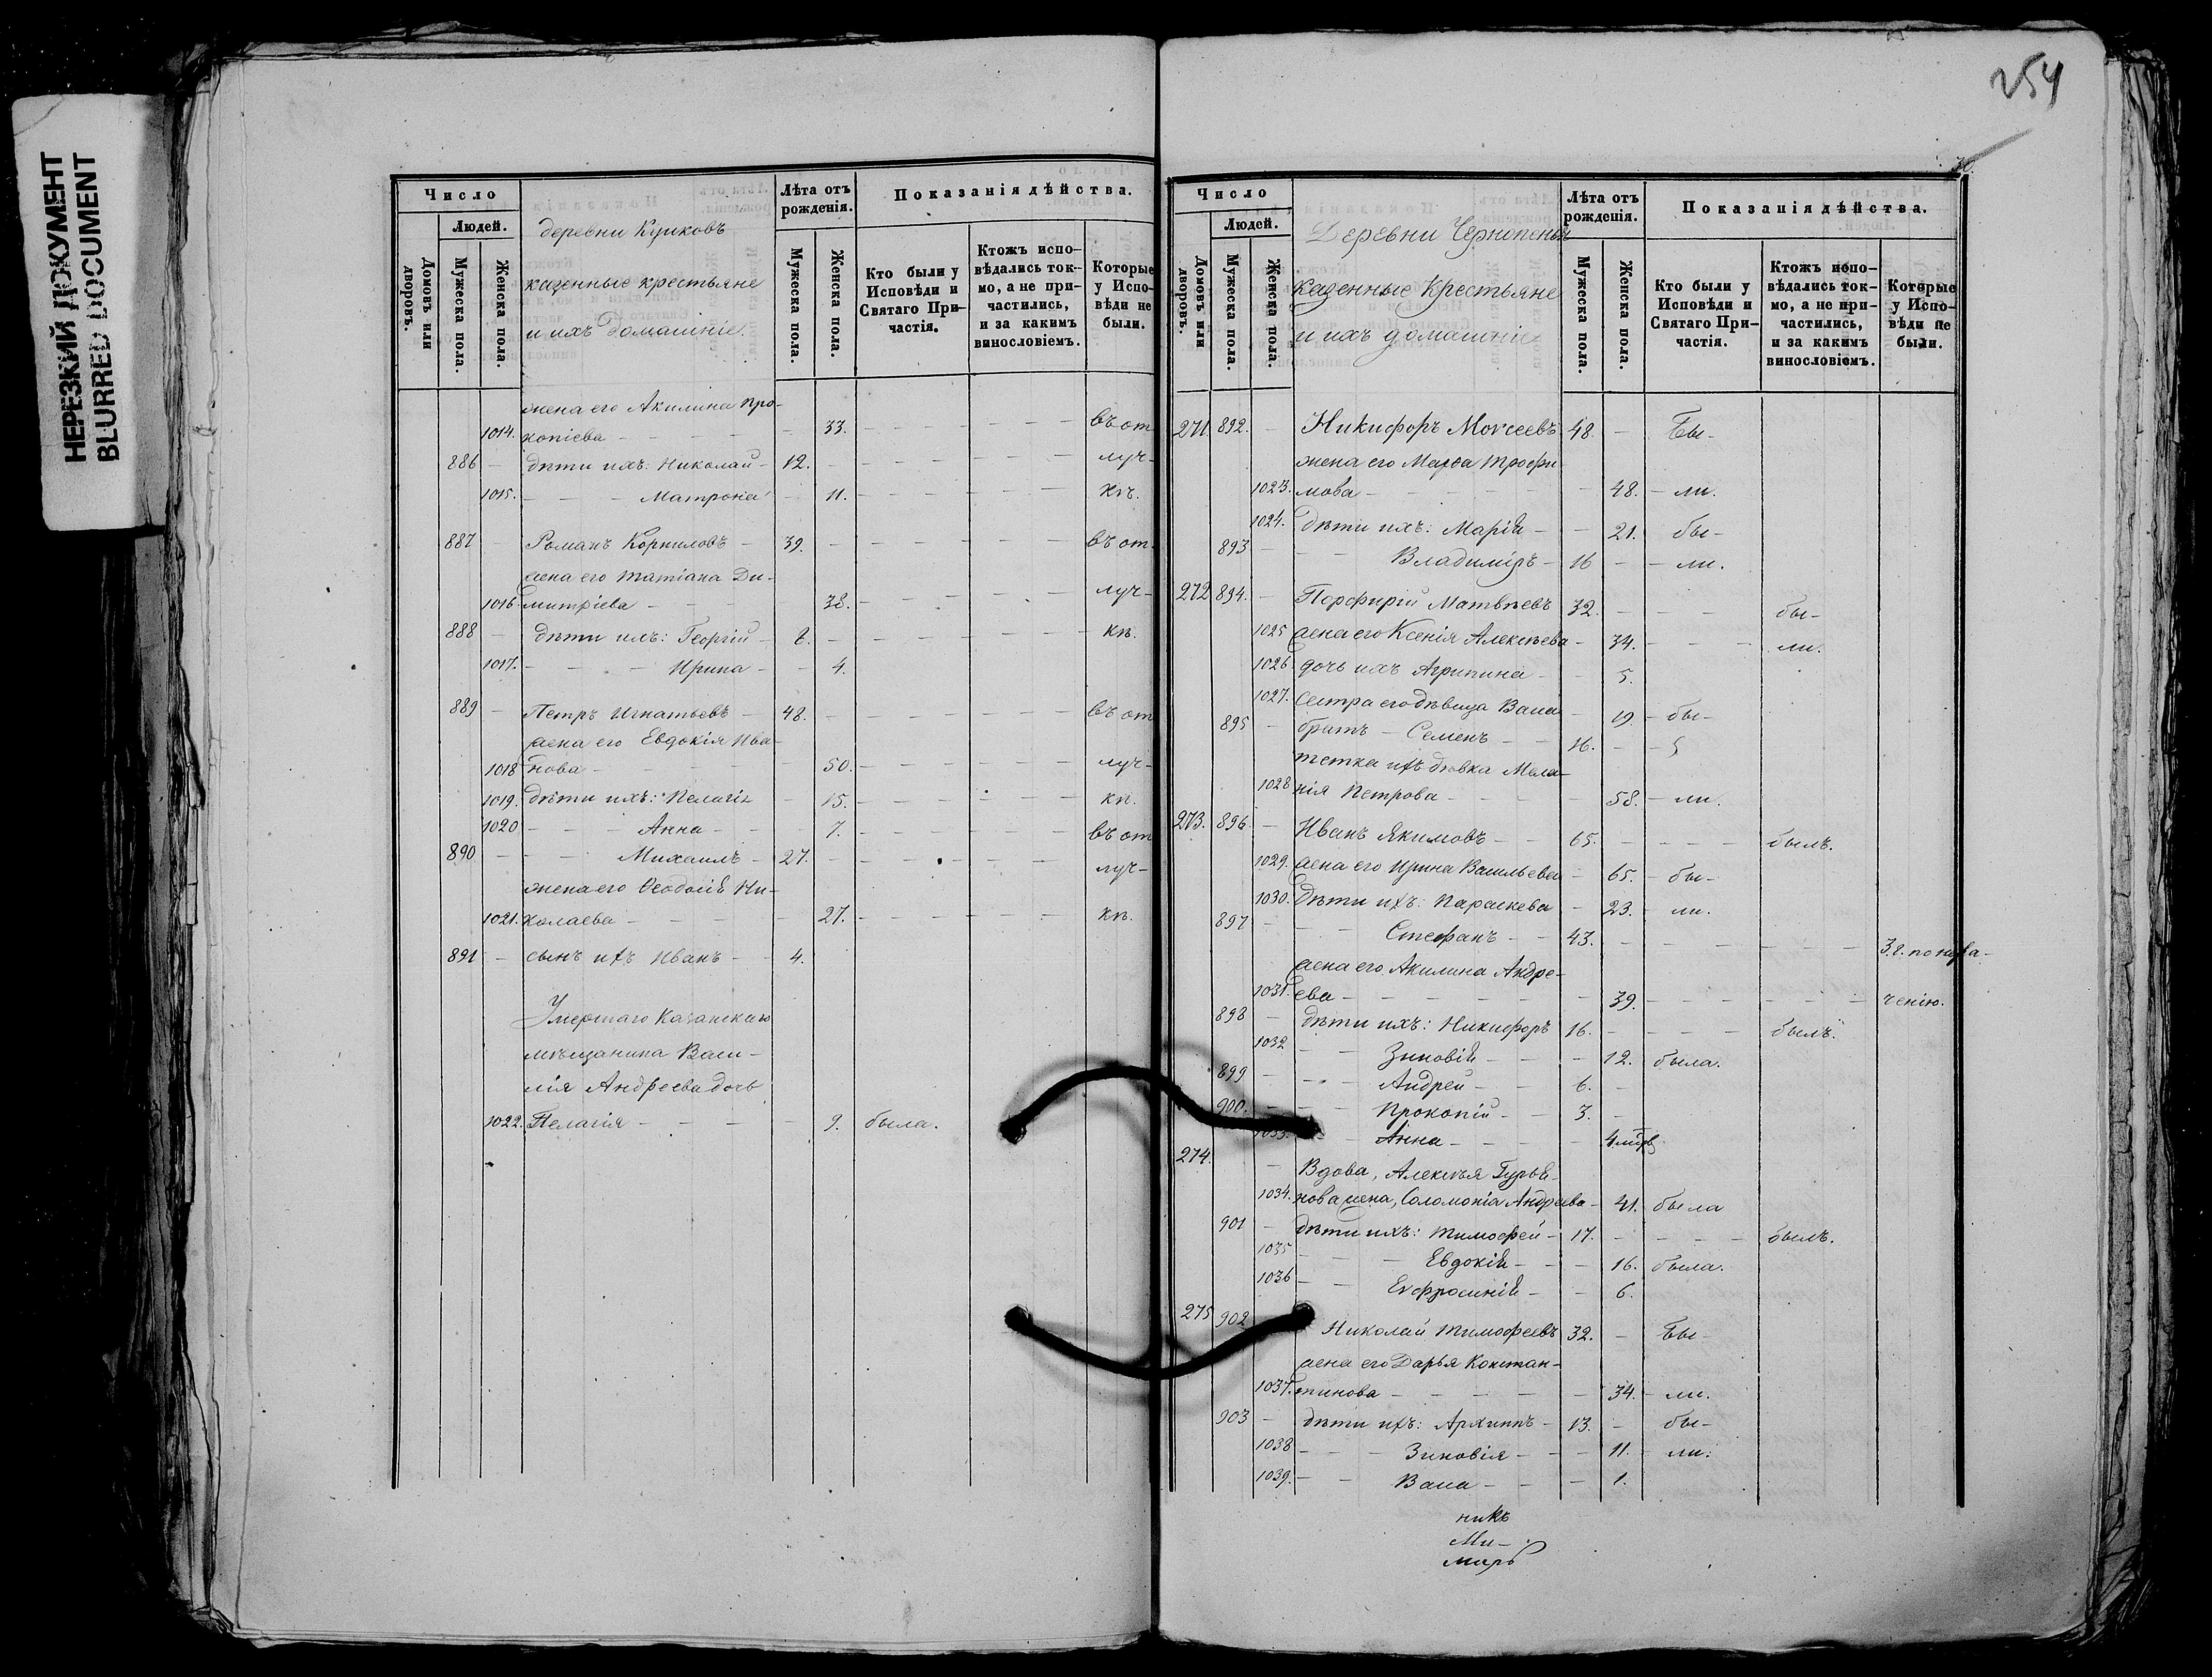 НЕРЕЗКИЙ ДОКУМЕНТ
BLURRED DOCUMENT
Число
Людей.
Домовъ или дворовъ.
Мужеска пола.
Женска пола.
деревни Куликовъ
казенные крестьяне
и ихъ домашніе.
Лѣта отъ рожденія.
Мужеска пола.
Женска пола.
Показанія дѣйства.
Кто были у Исповѣди и Святаго При-
частія.
Ктожъ испо-
вѣдались ток-
мо, а не при-
частились,
и за какимъ
винословіемъ.
Которые
у Испо-
вѣди не
были.
жена его Акилина Про-
1014. копіева - 33. - въ от
886 - дѣти ихъ: Николай - 12. - луч-
1015. - Матрона - 11. - кѣ.
887 - Романъ Корниловъ - 39. - въ от
жена его Татіана Ди-
1016. митріева - 38. - луч-
888 - дѣти ихъ: Георгій - 8. - кѣ.
1017. - Ирина - 4.
889 - Петръ Игнатьевъ - 48. - въ от
жена его Евдокія Ива-
1018 нова - 50. - луч-
1019. дѣти ихъ: Пелагія - 15. - кѣ.
1020 - Анна - 7. - въ от
890 - Михаилъ - 27. - луч-
жена его Ѳеодосія Ни-
1021. колаева - 27. - кѣ.
891 - сынъ ихъ Иванъ - 4.
Умершаго Казанскаго
мѣщанина Васи-
лія Андреева дочь
1022. Пелагія - 9. была.
254
30.
Число
Людей.
Домовъ или дворовъ.
Мужеска пола.
Женска пола.
Деревни Чернопенья
Казенные Крестьяне
и ихъ домашніе
Лѣта отъ рожденія.
Мужеска пола.
Женска пола.
Показанія дѣйства.
Кто были у
Исповѣди и
Святаго При-
частія.
Ктожъ испо-
вѣдались ток-
мо, а не при-
частились,
и за какимъ
винословіемъ.
Которые
у Испо-
вѣди не
были.
271 892. - Никифоръ Моѵсеевъ 48. - Бы-
жена его Марѳа Трофи
1023. мова - 48. - ли.
1024. дѣти ихъ: Марія - 21. бы-
893 - Владиміръ - 16 - ли.
272 894. - Порфирій Матвѣевъ 32. - бы-
1025 жена его Ксенія Алексѣева - 34. - ли.
1026. дочь ихъ Агрипина - 5.
1027. Сестра его дѣвица Васса - 19. - бы-
895 - братъ - Семенъ - 16. -
тетка ихъ дѣвка Мела-
1028 нія Петрова - 58. - ли.
273. 896 - Иванъ Якимовъ - 65. - былъ.
1029. жена его Ирина Васильева - 65. - бы-
1030. Дѣти ихъ: Параскева - 23. - ли.
897 - Стефанъ - 43. - 3.г. по нера-
жена его Акилина Андре-
1031. ева - 39. - ченію.
898 - дѣти ихъ: Никифоръ 16. - былъ.
1032 - Зиновія - 12. была.
899 - Андрей - 6. -
900. - Прокопій - 3. -
1033. - Анна - 4 мѣс.
274. - Вдова, Алексѣя Гурья-
1034. нова жена, Соломонія Андреева - 41. была
901 - дѣти ихъ: Тимофей - 17. - былъ.
1035 - Евдокія - 16. была.
1036 - Еѵфросинія - 6.
275 902 Николай Тимофеевъ 32. - Бы-
жена его Дарья Констан-
1037. тинова - 34. - ли.
903 - дѣти ихъ: Архиппъ - 13. - бы-
1038 - Зиновія - 11. - ли.
1039. - Васса - 1.
никъ
Ми-